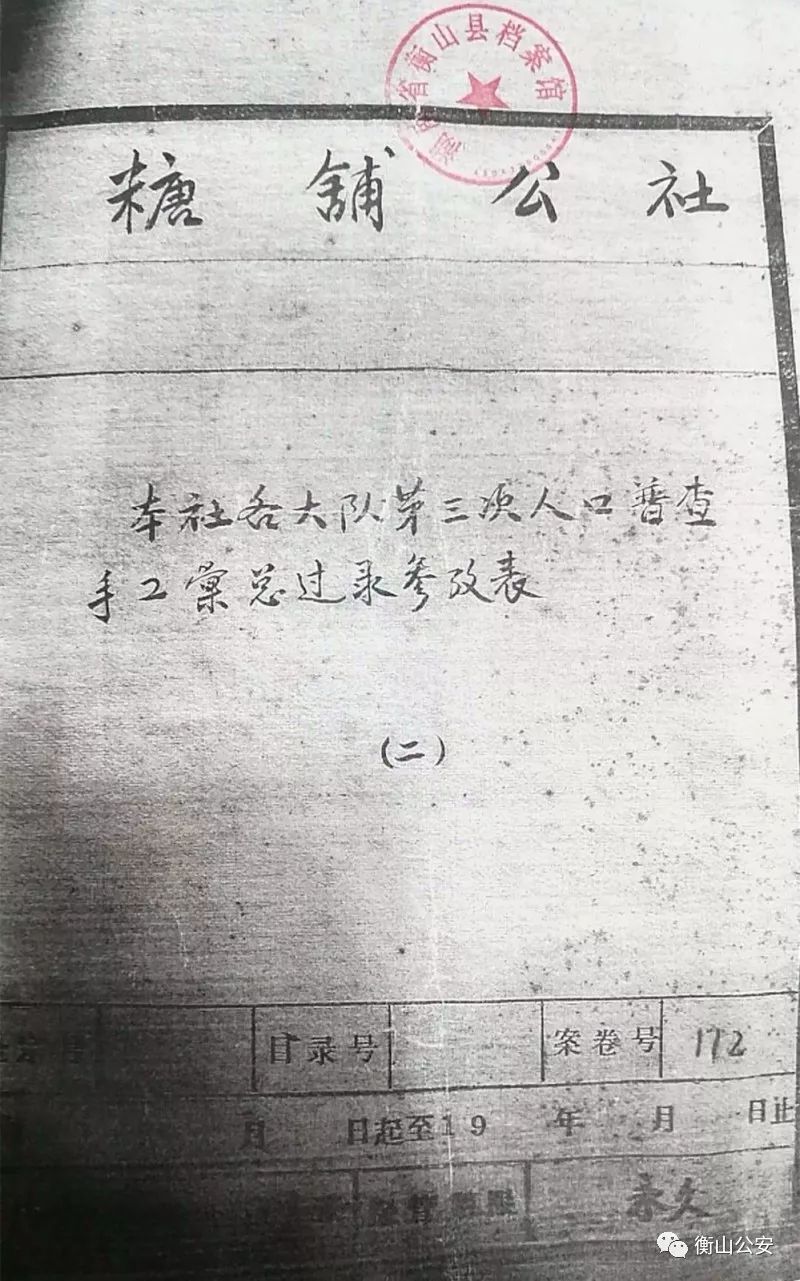 省衡山县档案馆
糖舖公社
本社各大队第三次人口普查
手工彙总过录参攷表
(二)
目录号 案卷号 172
月 日起至19 年 月 日止
永久
衡山公安